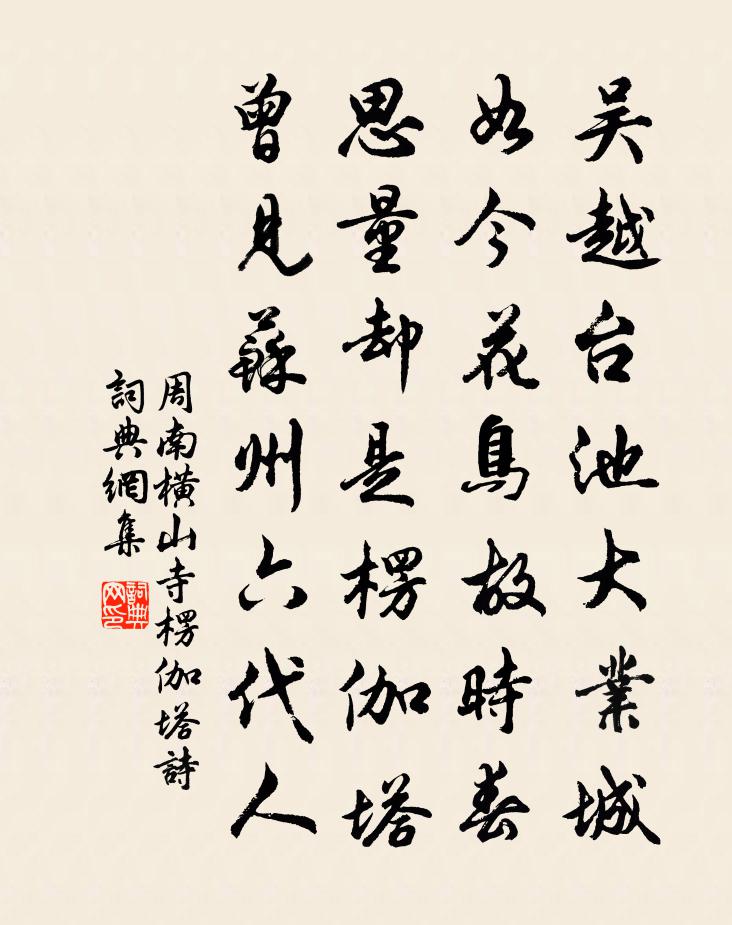 吴越台池大業城
如今花鳥故時春
思量却是楞伽塔
曾見蘇州六代人
周南橫山寺楞伽塔詩
詞典網集
詞典网印